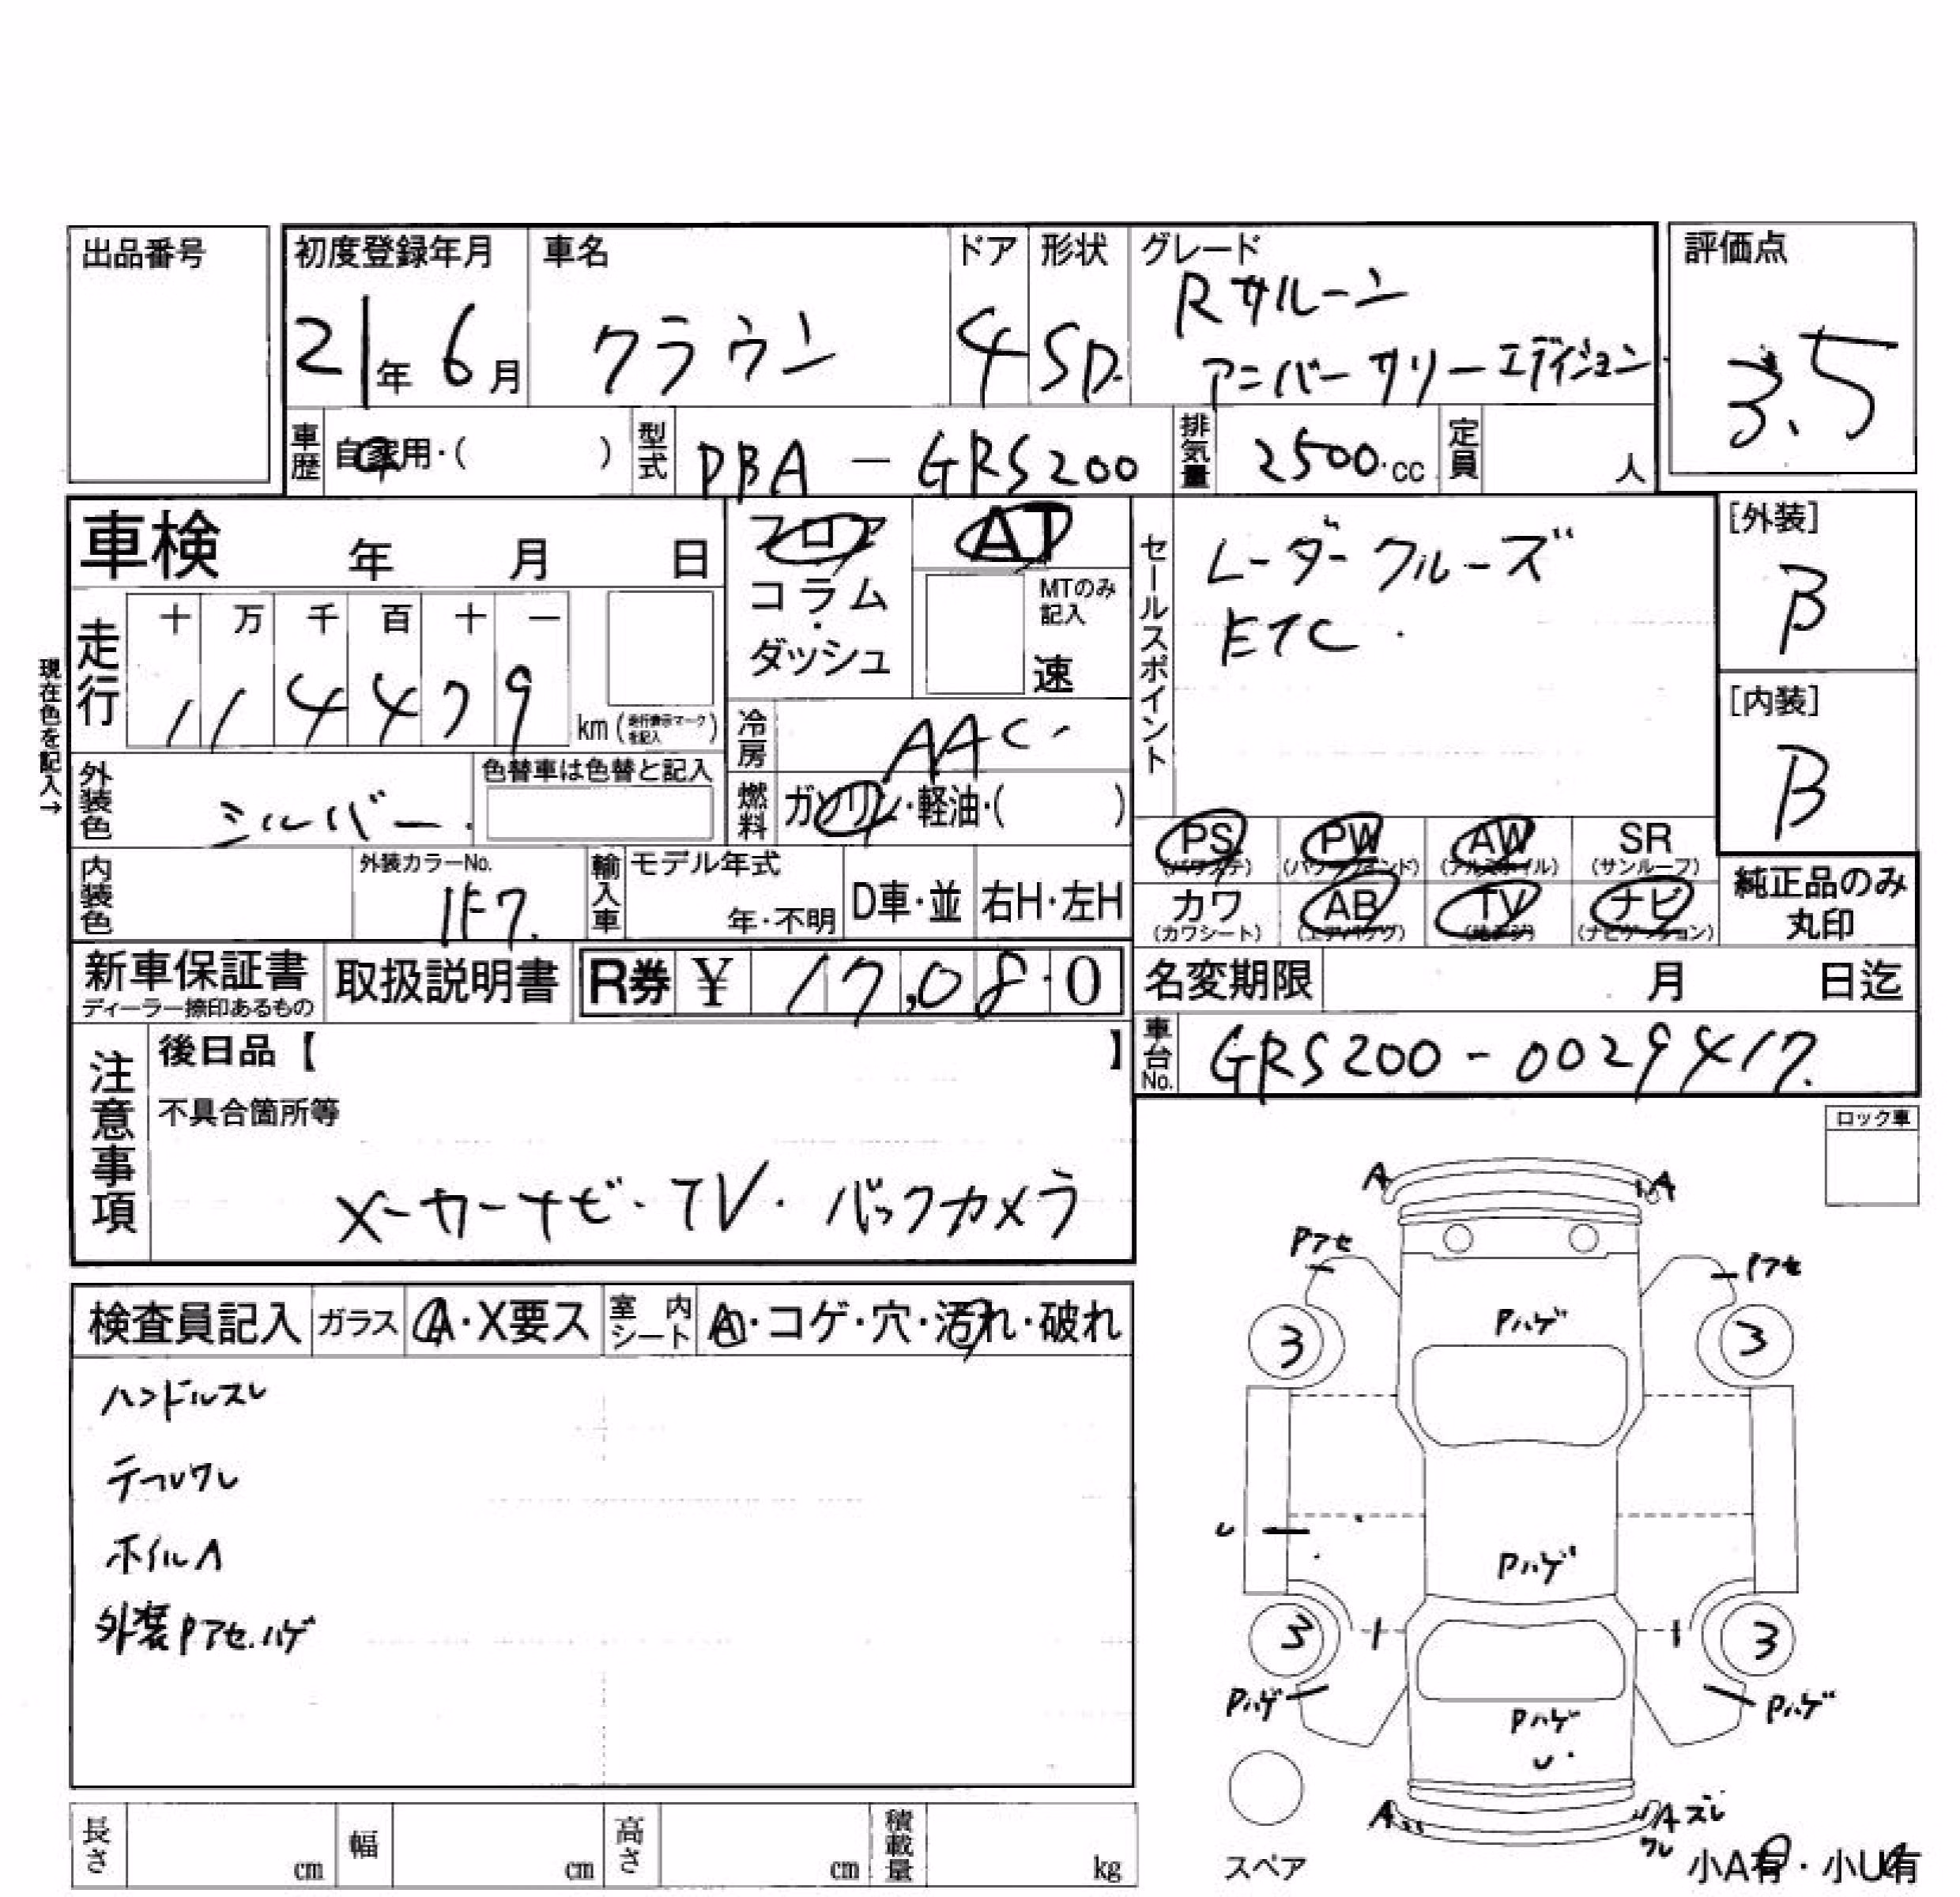 出品番号
初度登録年月 車名 ドア 形状 グレード 評価点
21年 6月 クラウン 4 SD. Rサルーン
アニバーサリーエディション
3.5
車歴 自家用・( ) 型式 DBA - GRS200 排気量 2500.cc 定員 人
車検 年 月 日
フロア
コラム
・
ダッシュ
AT
MTのみ
記入
速
セールスポイント
レーダークルーズ
ETC.
[外装]
B
[内装]
B
現在色を記入→
走行
十 万 千 百 十 一
1 1 4 4 7 9 km (走行表示マークを記入)
冷房 AAC.
外装色 シルバー. 色替車は色替と記入
燃料 ガソリン・軽油・( )
PS PW AW SR
(パワステ) (パワーウィンド) (アルミホイル) (サンルーフ)
カワ AB TV ナビ
(カワシート) (エアバッグ) (地デジ) (ナビゲーション)
純正品のみ
丸印
内装色 外装カラーNo.
1F7.
輸入車 モデル年式
年・不明 D車・並 右H・左H
新車保証書
ディーラー捺印あるもの
取扱説明書 R券 ¥ 17,080
名変期限 月 日迄
車台No. GRS200-0029417.
注意事項
後日品【 】
不具合箇所等
メーカーナビ・TV・バックカメラ
ロック車
検査員記入 ガラス A・X要ス 室内シート A・コゲ・穴・汚れ・破れ
ハンドルスレ
ホイルA
外装Pアセ.ハゲ
A A
Pアセ Pアセ
Pハゲ
3 3
U
Pハゲ
3 3
Pハゲ Pハゲ
Pハゲ
U.
A A ズレ
ワレ
スペア
小A有・小U有
長さ cm 幅 cm 高さ cm 積載量 kg